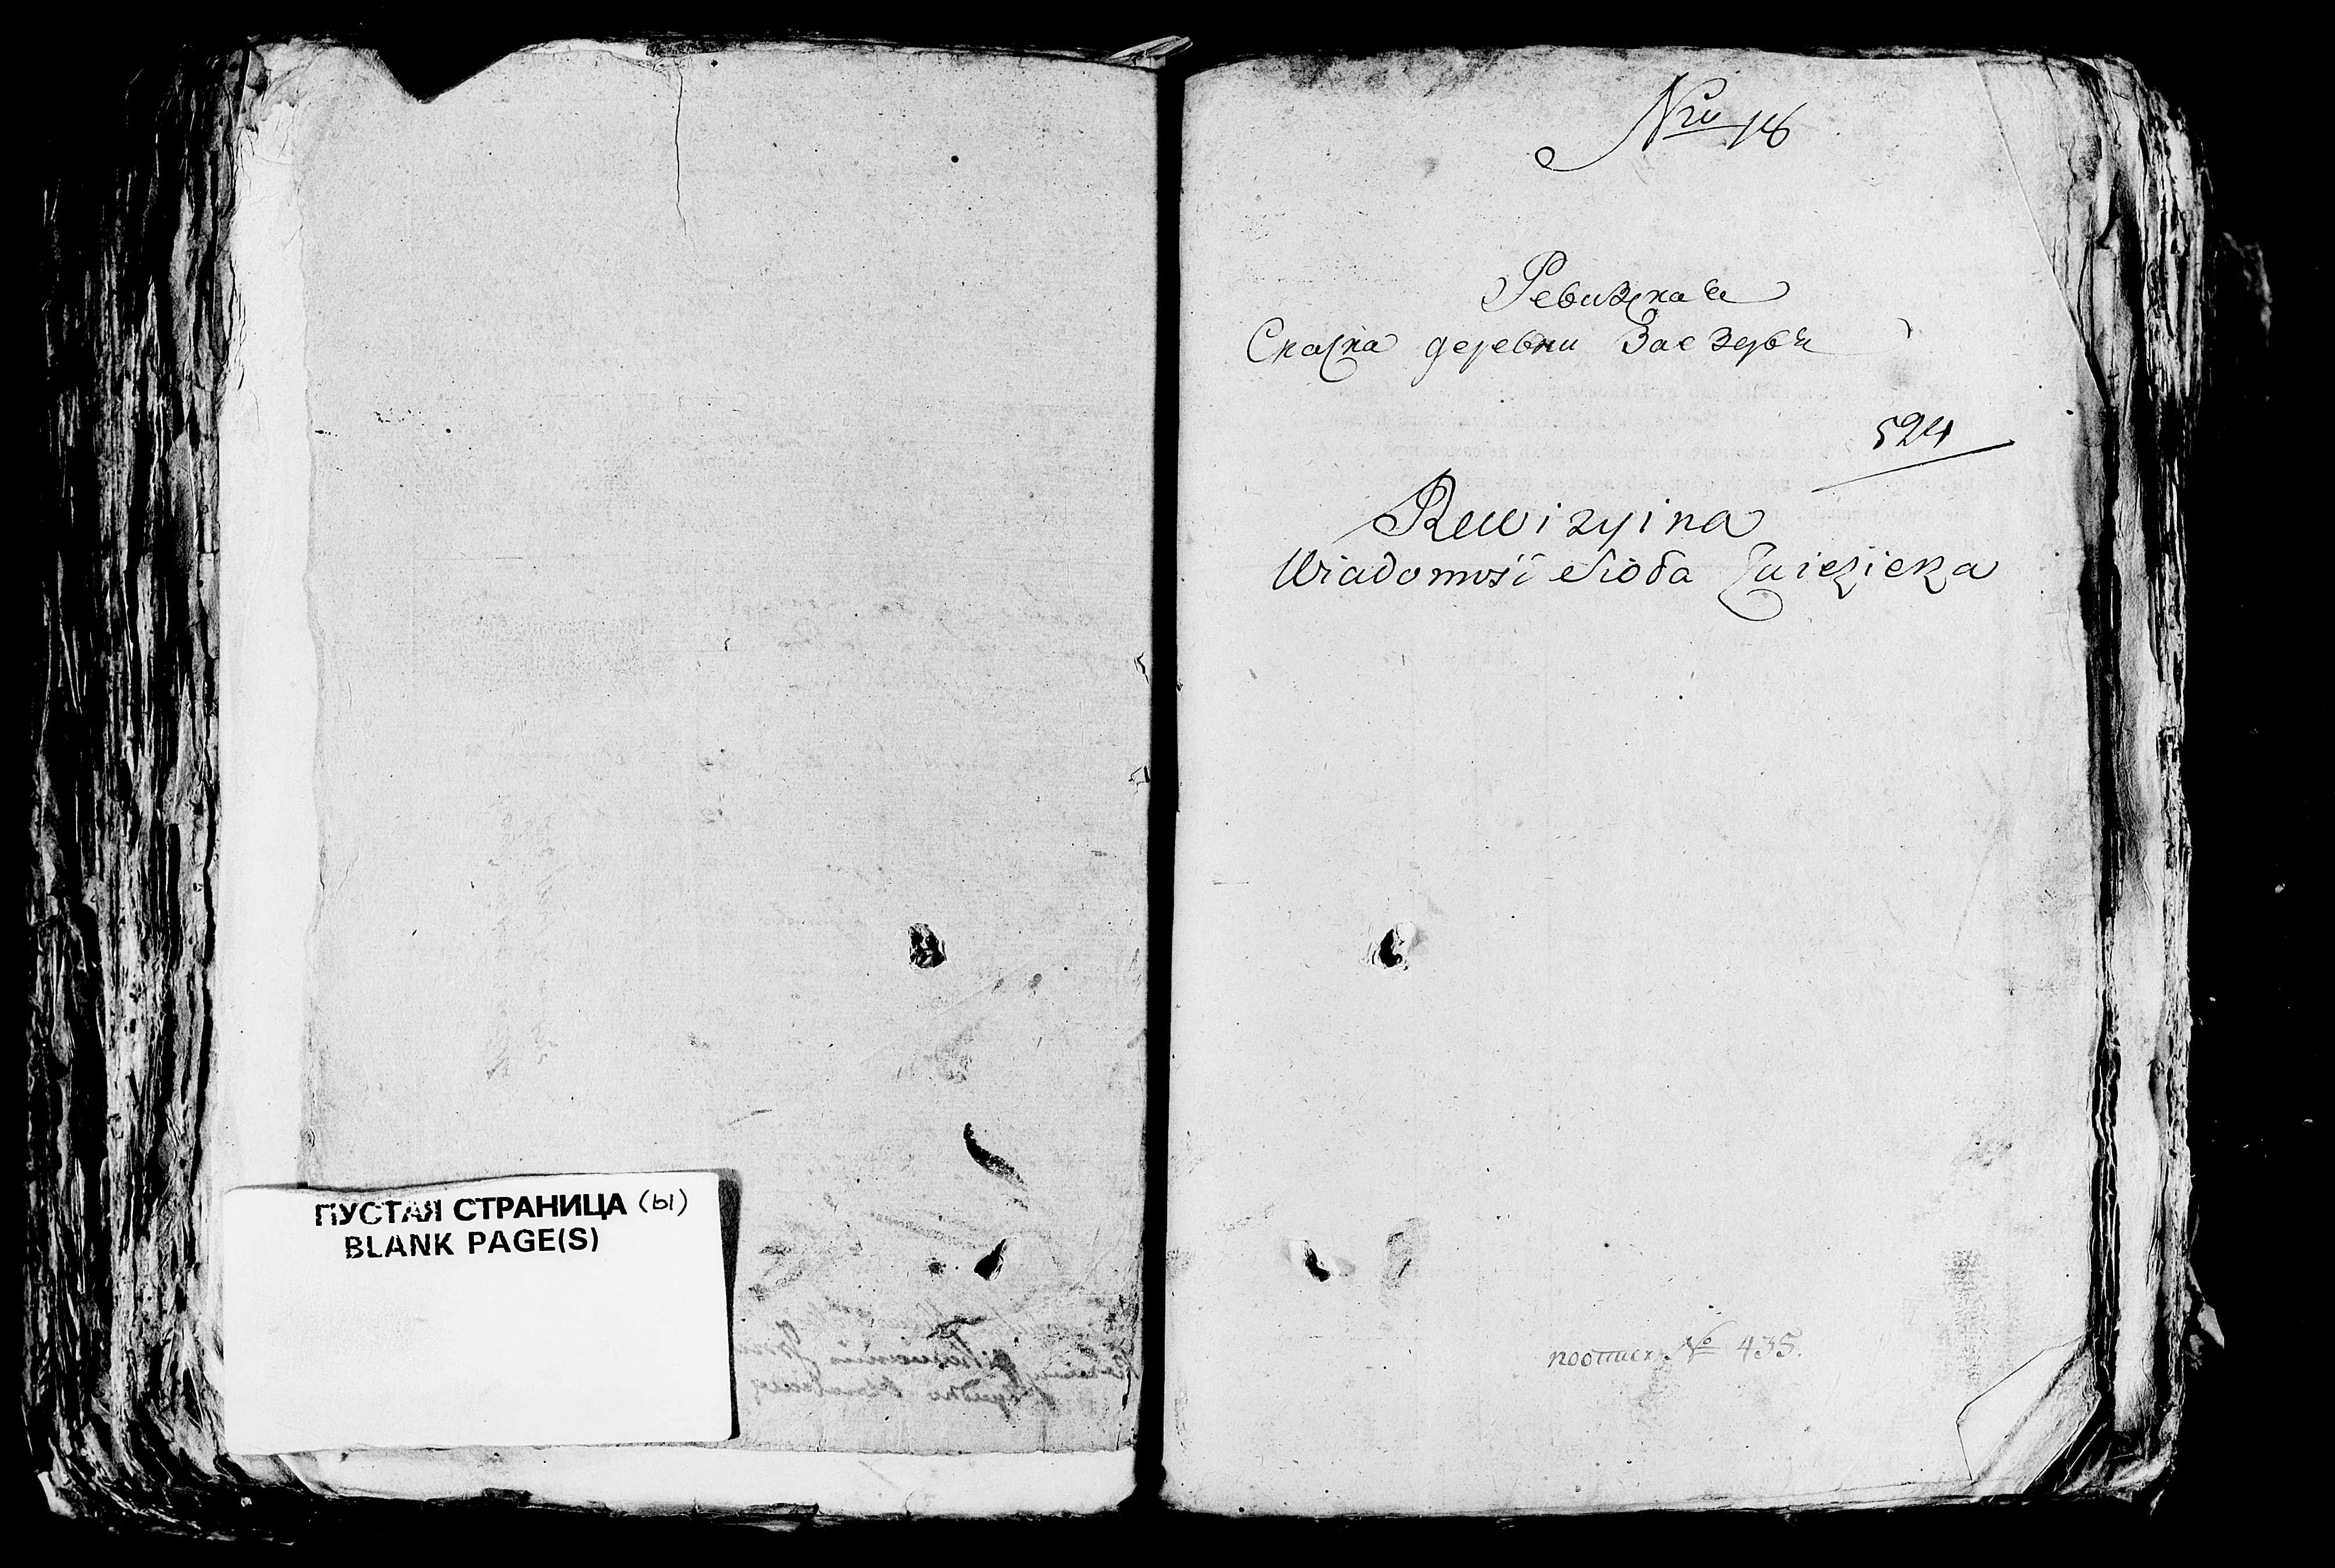 ПУСТАЯ СТРАНИЦА (ы)
BLANK PAGE(S)
Nro 18
Ревизская
Сказка деревни Заезерья
524
Rewizyina
Wiadomość Sioła
поописи № 435.